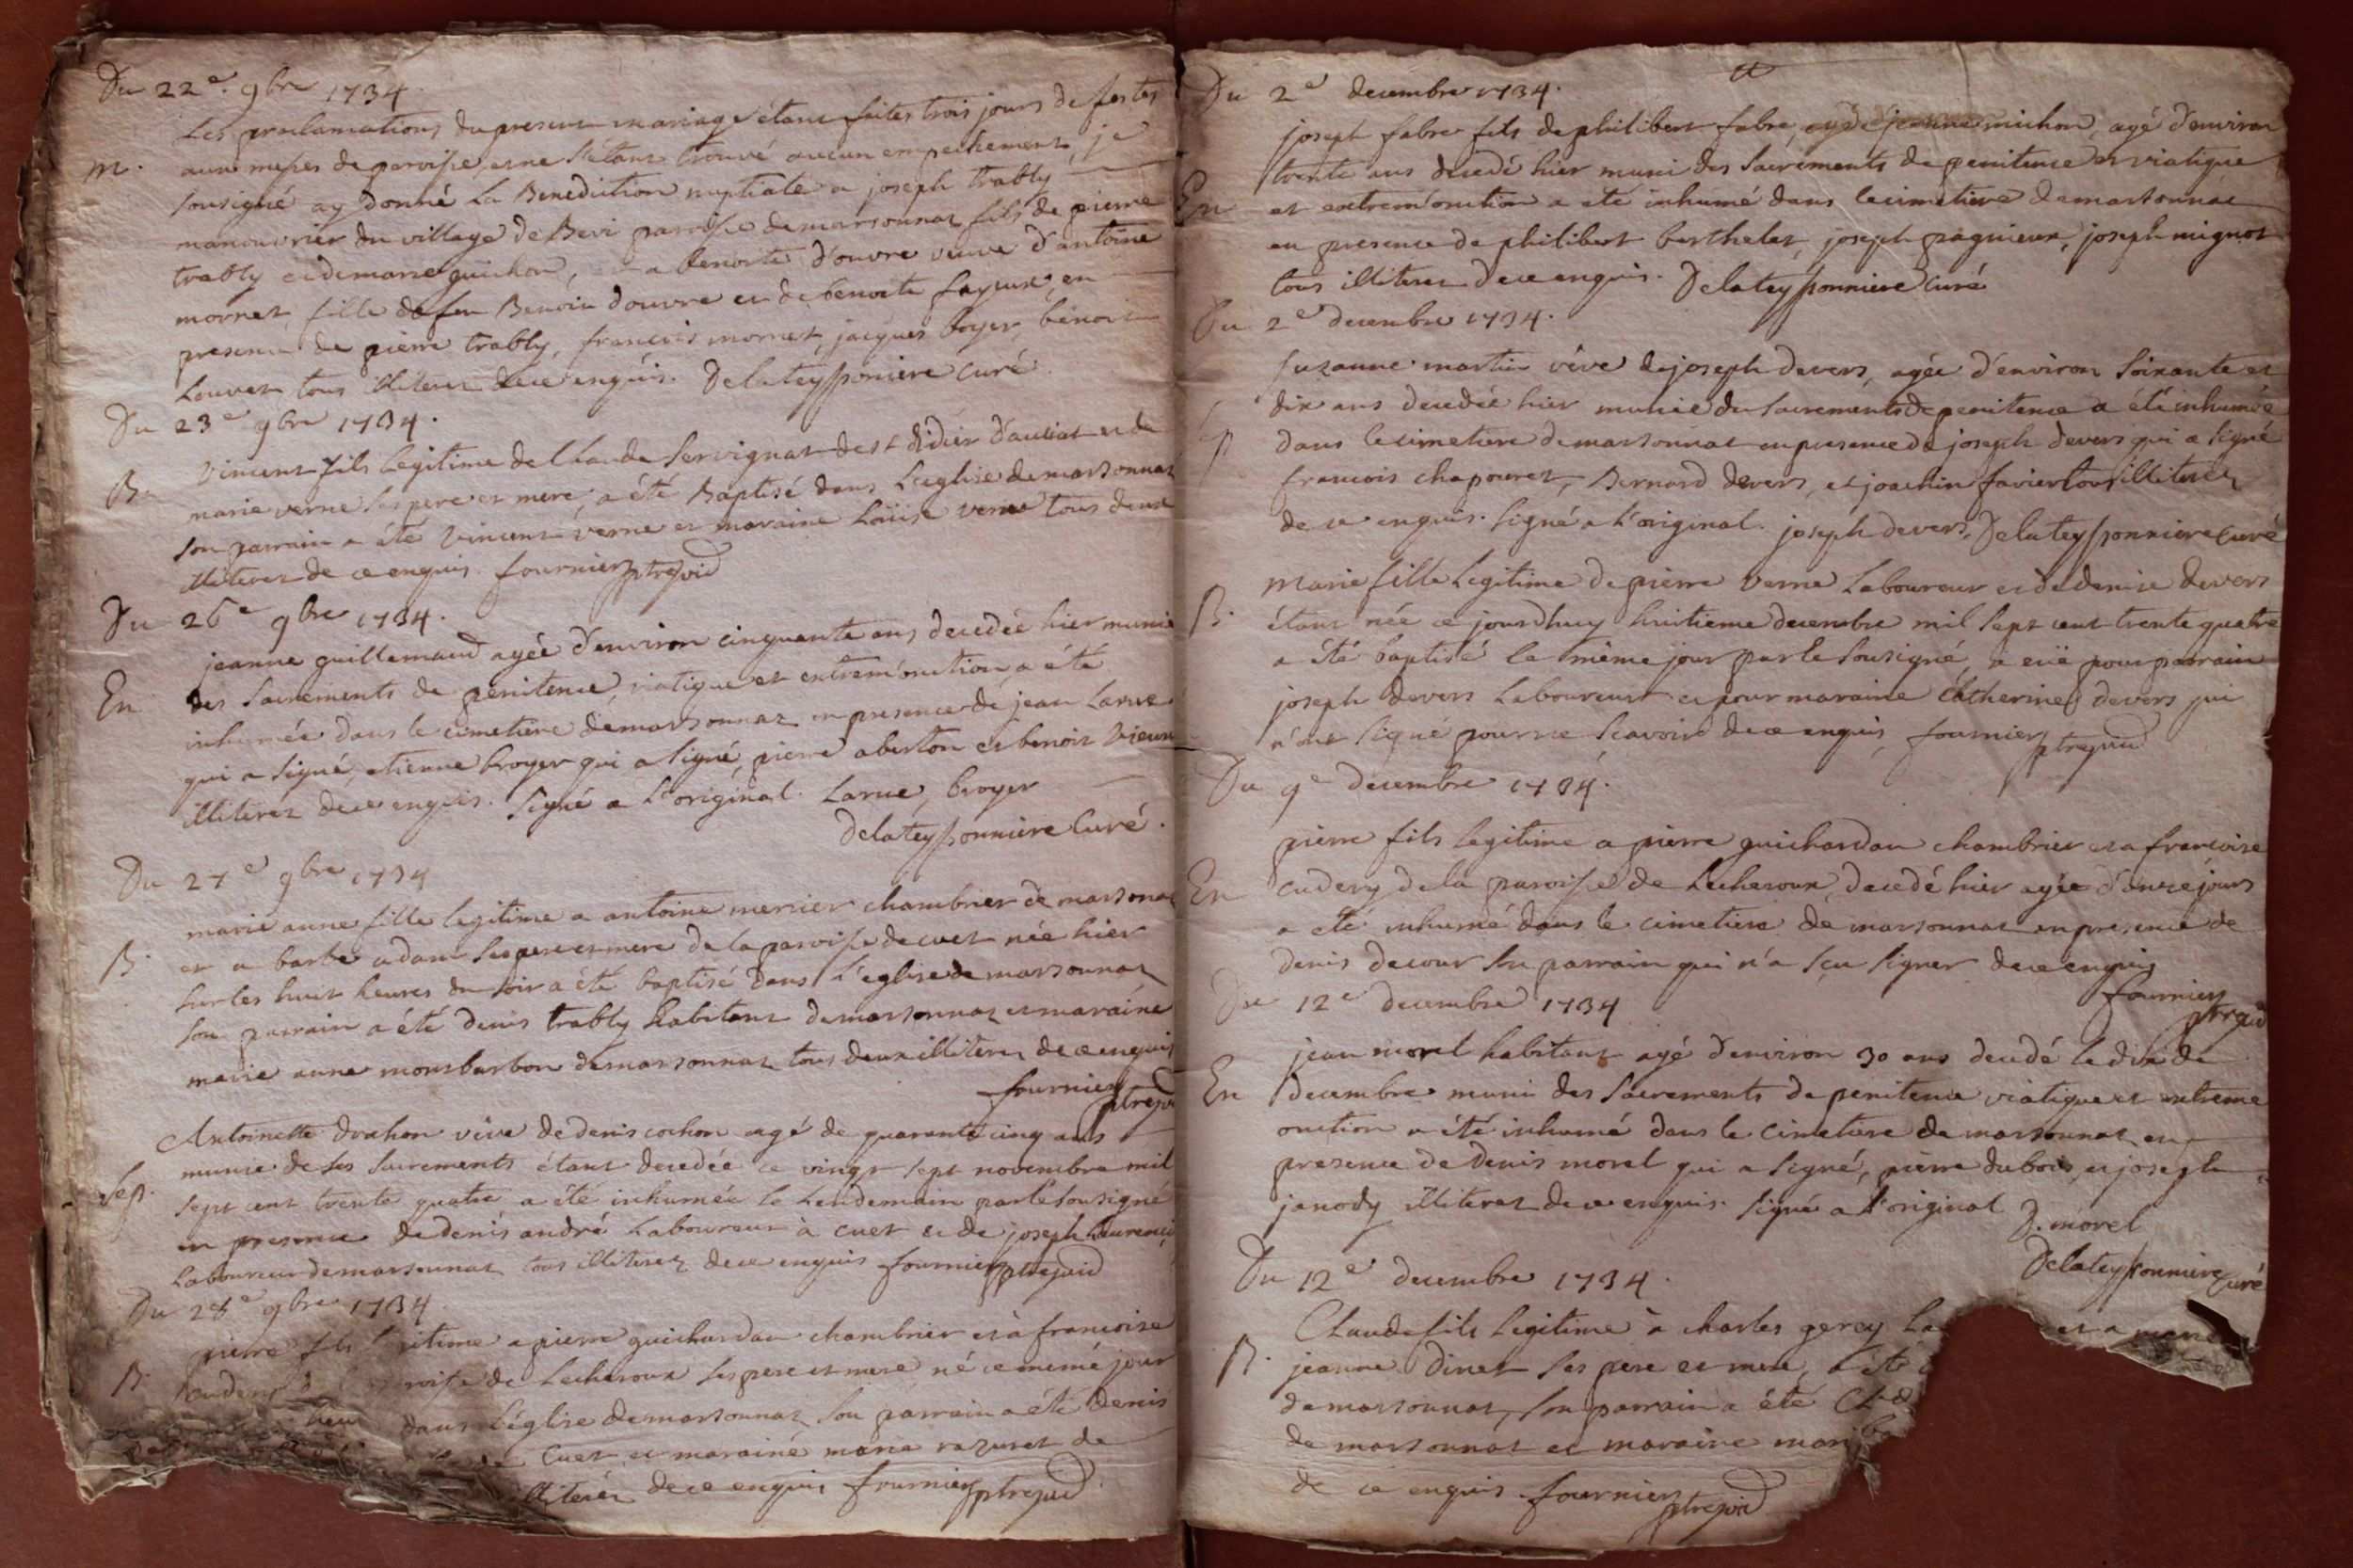 Du 22e. 9bre 1734.
Les proclamations du present mariage étant faites trois jours de festes
m. aux messes de paroisse, et ne s'étant trouvé aucun empechement, je
sousigné ay donné La Benediction nuptiale a joseph trably
manouvrier du village de Bevi paroisse de marsonnat fils de pierre
trably et de marie guichon, et a benoite d'ouvre veuve d'antoine
mornet, fille de feu Benoit douvre et de benoite fayeux, en
presence de pierre trably, francois mornet, jacques boyer, bénoit
Louvet tous illiteres de ce enquis. Delateyssonniere Curé.
Du 23e 9bre 1734.
Vincent fils Legitime de Claude Servignat de st didier d'aussiat et de
B. marie verne ses pere et mere, a été Baptisé dans L'eglise de marsonnat
son parrain a été Vincent verne et maraine Loüise verne tous deux
illiteres de ce enquis. fournier ptre vic
Du 26e 9bre 1734.
jeanne guillemaud agée d'environ cinquante ans decedée hier munie
En des sacrements de penitence, viatique et extrem'onction, a été
inhumée dans le cimetiere de marsonnat en presence de jean Larue
qui a signé, etienne broyer qui a signé, pierre aberton et benoit Vieux
illiterez de ce enquis. signé a L'original. Larue, broyer
Delateyssonniere Curé.
Du 27e 9bre 1734
marie anne fille legitime a antoine mercier chambrier de marsonnat
B. et a barbe adam ses pere et mere de la paroisse de cuet née hier
sur les huit heures du soir a été baptisé dans L'eglise de marsonnat
son parrain a été denis trably habitant de marsonnat et maraine
marie anne monbarbon de marsonnat tous deux illiterez de ce enquis
fournier ptre vic
Antoinette drohon véve de denis cochon agé de quarante cinq ans
munie de ses sacrements étant decedée ce vingt sept novembre mil
Sep. sept cent trente quatre a été inhumée le Lendemain par le sousigné
en presence de denis andré Laboureur à cuet et de joseph Laurency
Laboureur de marsonnat tous illiterez de ce enquis fournier ptre vic
Du 28e 9bre 1734.
pierre fils legitime a pierre guichardan chambrier et à francoise
B. cudery de la paroisse de Lecheroux ses pere et mere né ce meme jour
dans L'église de marsonnat son parrain a été denis
de Cuet et maraine marie razuret de
illiterés de ce enquis fournier ptre vic
Du 2e decembre 1734.
joseph fabre fils de philibert fabre, et de jeanne michon, agé d'environ
trente ans decedé hier muni des sacrements de penitence et viatique
En et extrem'onction a eté inhumé dans le cimetiere de marsonnat
en presence de philibert berthelet, joseph pagnieux, joseph mignot
tous illiterez de ce enquis. Delateyssonniere Curé
Du 2e decembre 1734.
suzanne martin véve de joseph devers, agée d'environ soixante et
dix ans decedée hier munie des sacrements de penitence a été inhumée
Sp dans le cimetiere de marsonnat en presence de joseph devers qui a signé
francois chapouret, Bernard devers, et joachin favier tous illiterez
de ce enquis. signé a L'original. joseph devers, Delateyssonniere Curé
Marie fille Legitime de pierre verne Laboureur et de denise devers
B. étant née ce jourdhuy huitieme decembre mil sept cent trente quatre
a été baptisé le méme jour par le sousigné, a eüe pour parrain
joseph devers Laboureur et pour maraine Catherine devers qui
n'ont signé pour ne scavoir de ce enquis, fournier ptre vic
Du 9e decembre 1734.
pierre fils legitime a pierre guichardan chambrier et a francoise
En cudery de la paroisse de Lecheroux, decedé hier agée d'onze jours
a eté inhumé dans le cimetiere de marsonnat en presence de
denis decour son parrain qui n'a scu signer de ce enquis
fournier ptre vic
Du 12e decembre 1734
jean morel habitant agé d'environ 30 ans decedé le dix de
En decembre muni des sacrements de penitence viatique et extreme
onction a été inhumé dans le cimetiere de marsonnat en
presence de denis morel qui a signé, pierre dubois, et joseph
janody illiterez de ce enquis. signé a L'original D. morel
Delateyssonniere Curé
Du 12e decembre 1734.
Claude fils legitime à charles gercy La et a
B. jeanne dinet ses pere et mere, a été
de marsonnat, son parrain a été
de marsonnat et maraine
de ce enquis fournier ptre vic